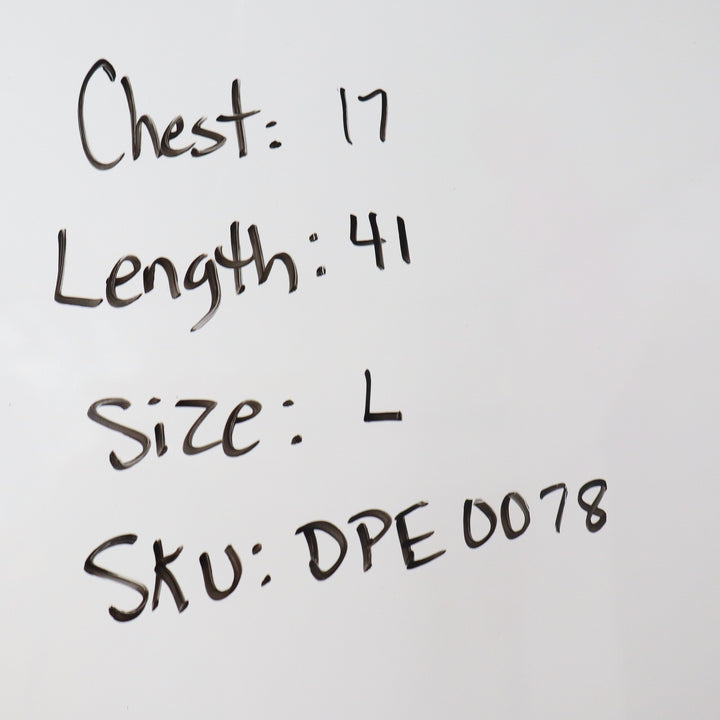 Chest: 17
Length: 41
Size: L
SKU: DPE 0078